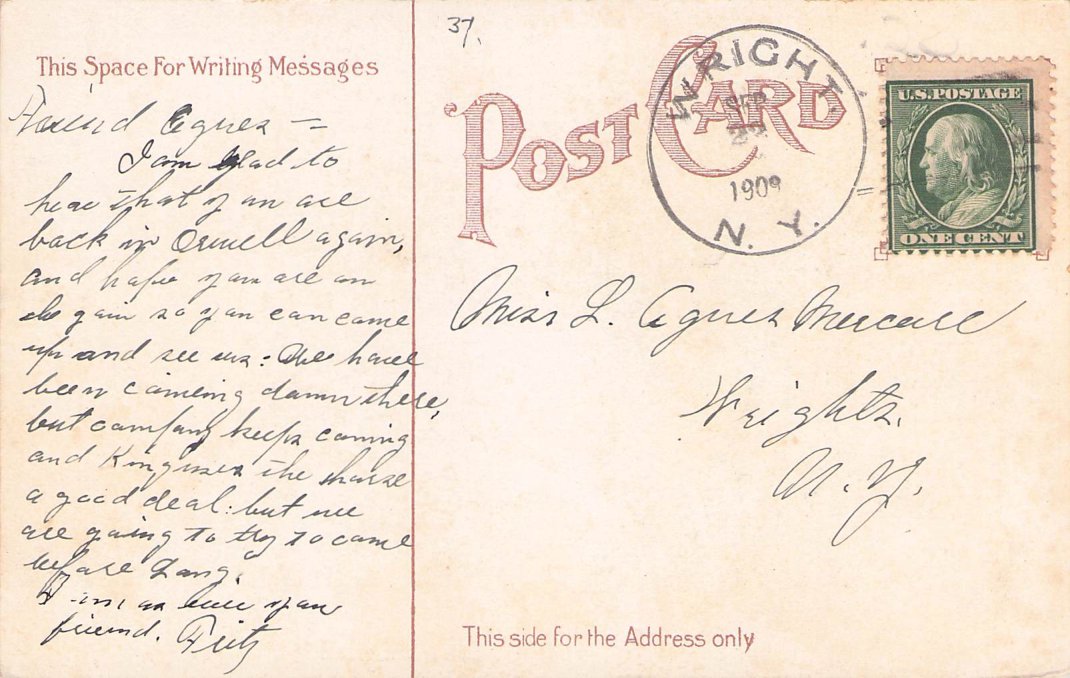 This Space For Writing Messages
Friend Agnes =
I am glad to
hear that you are
back in Orwell again,
and hope you are on
the gain so you can come
up and see us: We have
been comeing down there,
but company keeps coming
and King uses the horse
a good deal: but we
are going to try to come
before long.
I am as ever your
friend. Fritz
37.
POST CARD
WRIGHT
SEP
22
1909
N. Y.
U.S. POSTAGE
ONE CENT
Miss L. Agnes
Wrights.
N. Y.
This side for the Address only